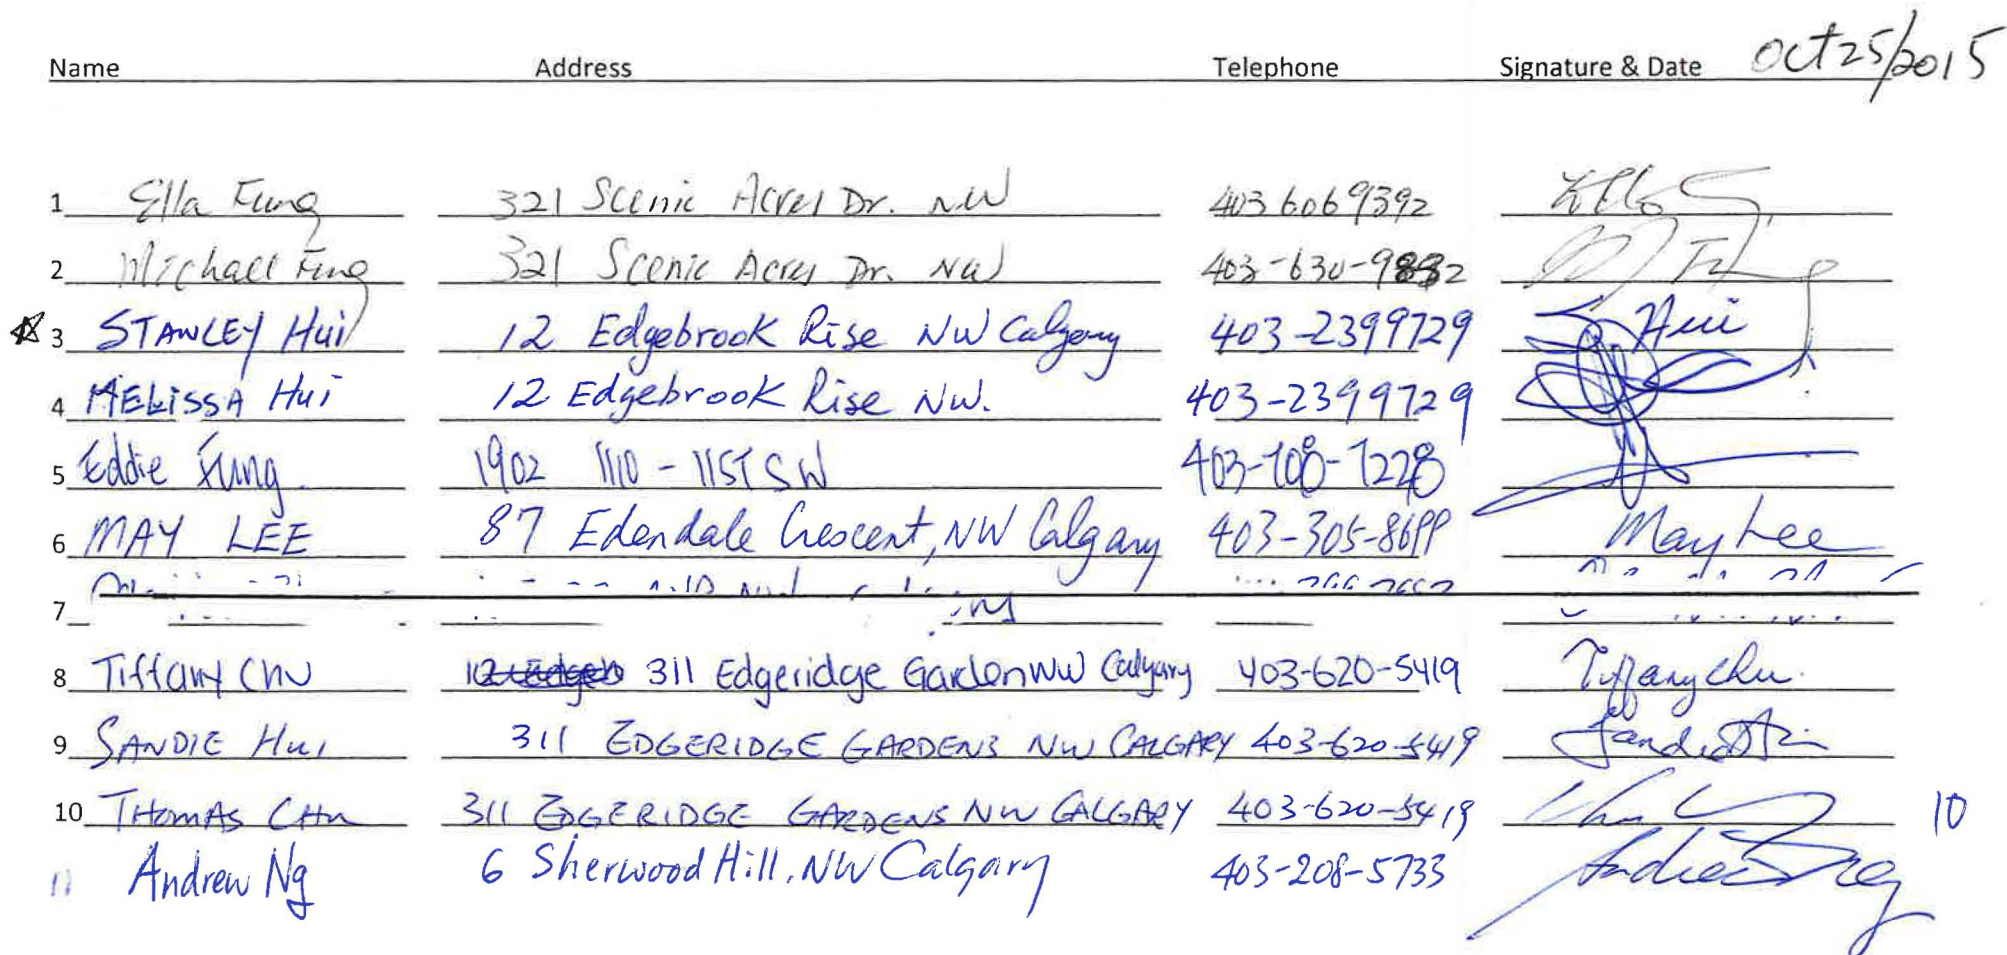 Name Address Telephone Signature & Date Oct 25/2015
1 Ella Fung 321 Scenic Acres Dr. NW 403 6069392
2 Michael Fung 321 Scenic Acres Dr. NW 403-630-9832
3 STANLEY Hui 12 Edgebrook Rise NW Calgary 403-2399729 Hui
4 MELISSA Hui 12 Edgebrook Rise NW. 403-2399729
5 Eddie Fung. 1902 1110 - 11ST SW 403-708-7228
6 MAY LEE 87 Edendale Crescent, NW Calgary 403-305-8699 May Lee
7
8 Tiffany Chu 311 Edgeridge Garden NW Calgary 403-620-5419 Tiffany Chu
9 SANDIE Hui 311 EDGERIDGE GARDENS NW CALGARY 403-620-5419 Sandie Hui
10 THOMAS CHU 311 EDGERIDGE GARDENS NW CALGARY 403-620-5419 10
11 Andrew Ng 6 Sherwood Hill, NW Calgary 403-208-5733 Andrew Ng